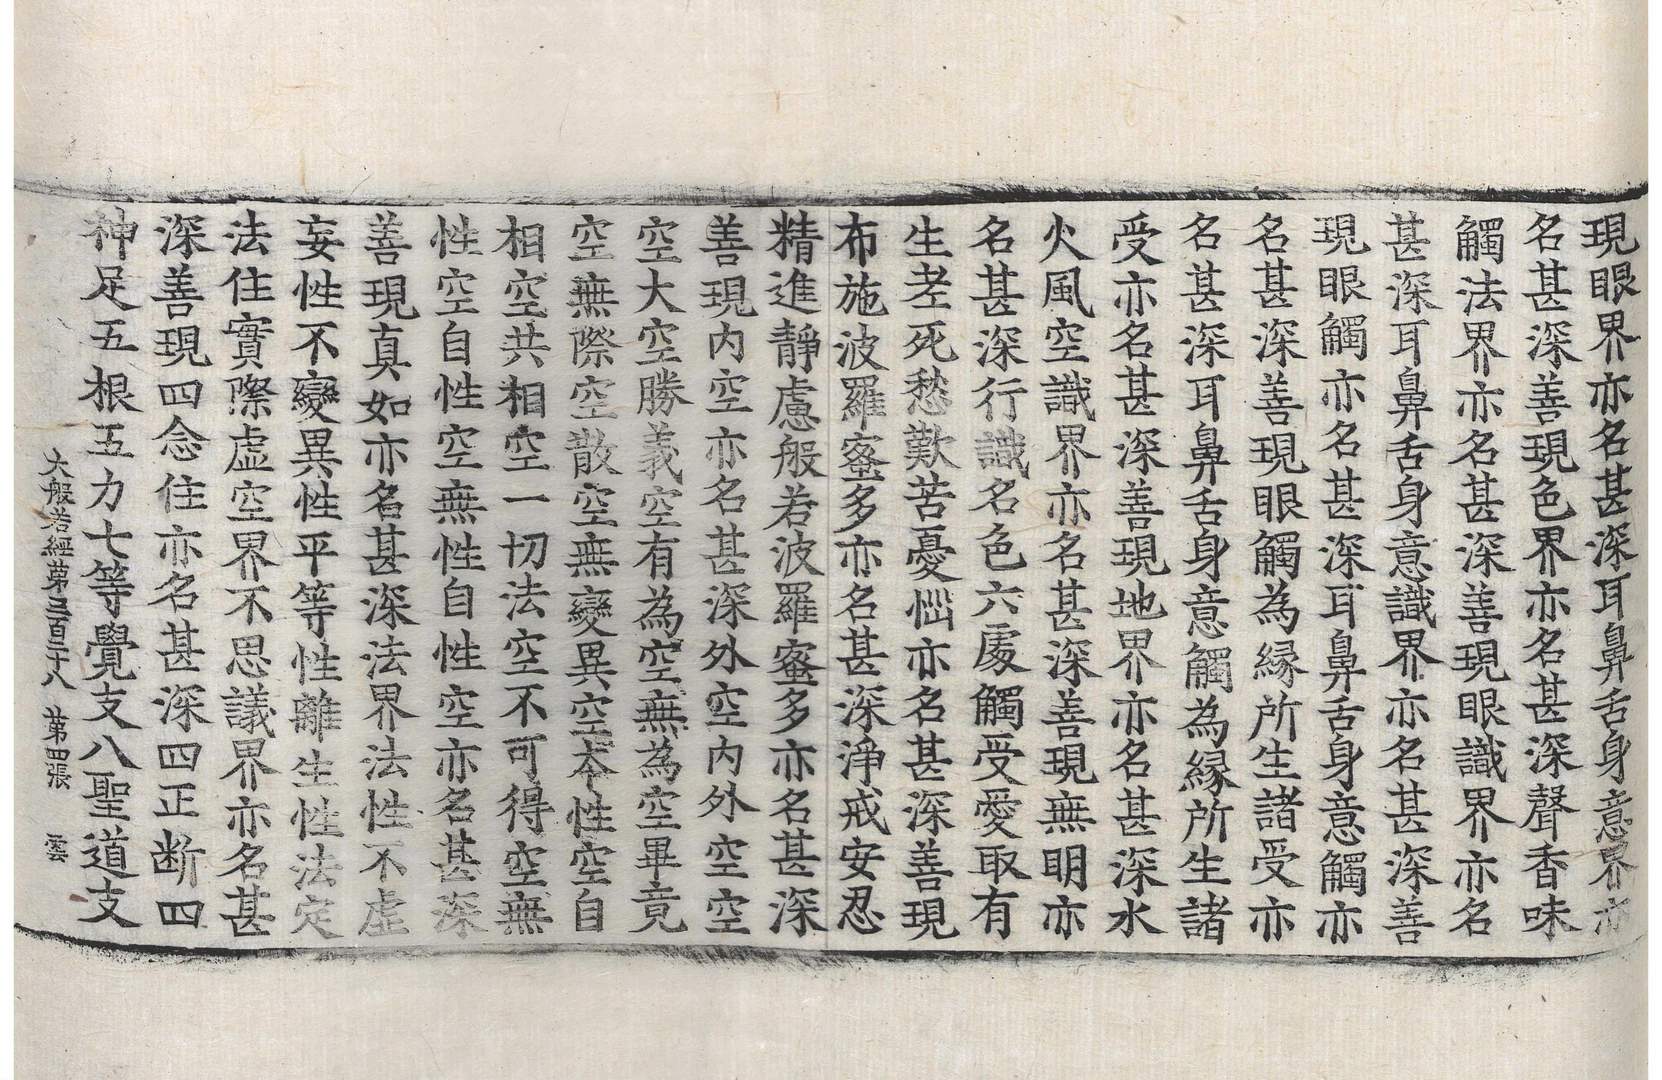 現眼界亦名甚深耳鼻舌身意界亦
名甚深善現色界亦名甚深聲香味
觸法界亦名甚深善現眼識界亦名
甚深耳鼻舌身意識界亦名甚深善
現眼觸亦名甚深耳鼻舌身意觸亦
名甚深善現眼觸為緣所生諸受亦
名甚深耳鼻舌身意觸為緣所生諸
受亦名甚深善現地界亦名甚深水
火風空識界亦名甚深善現無明亦
名甚深行識名色六處觸受愛取有
生老死愁歎苦憂惱亦名甚深善現
布施波羅蜜多亦名甚深淨戒安忍
精進靜慮般若波羅蜜多亦名甚深
善現內空亦名甚深外空內外空空
空大空勝義空有為空無為空畢竟
空無際空散空無變異空本性空自
相空共相空一切法空不可得空無
性空自性空無性自性空亦名甚深
善現真如亦名甚深法界法性不虛
妄性不變異性平等性離生性法定
法住實際虛空界不思議界亦名甚
深善現四念住亦名甚深四正斷四
神足五根五力七等覺支八聖道支
大般若經第三百二十八 第四張 雲